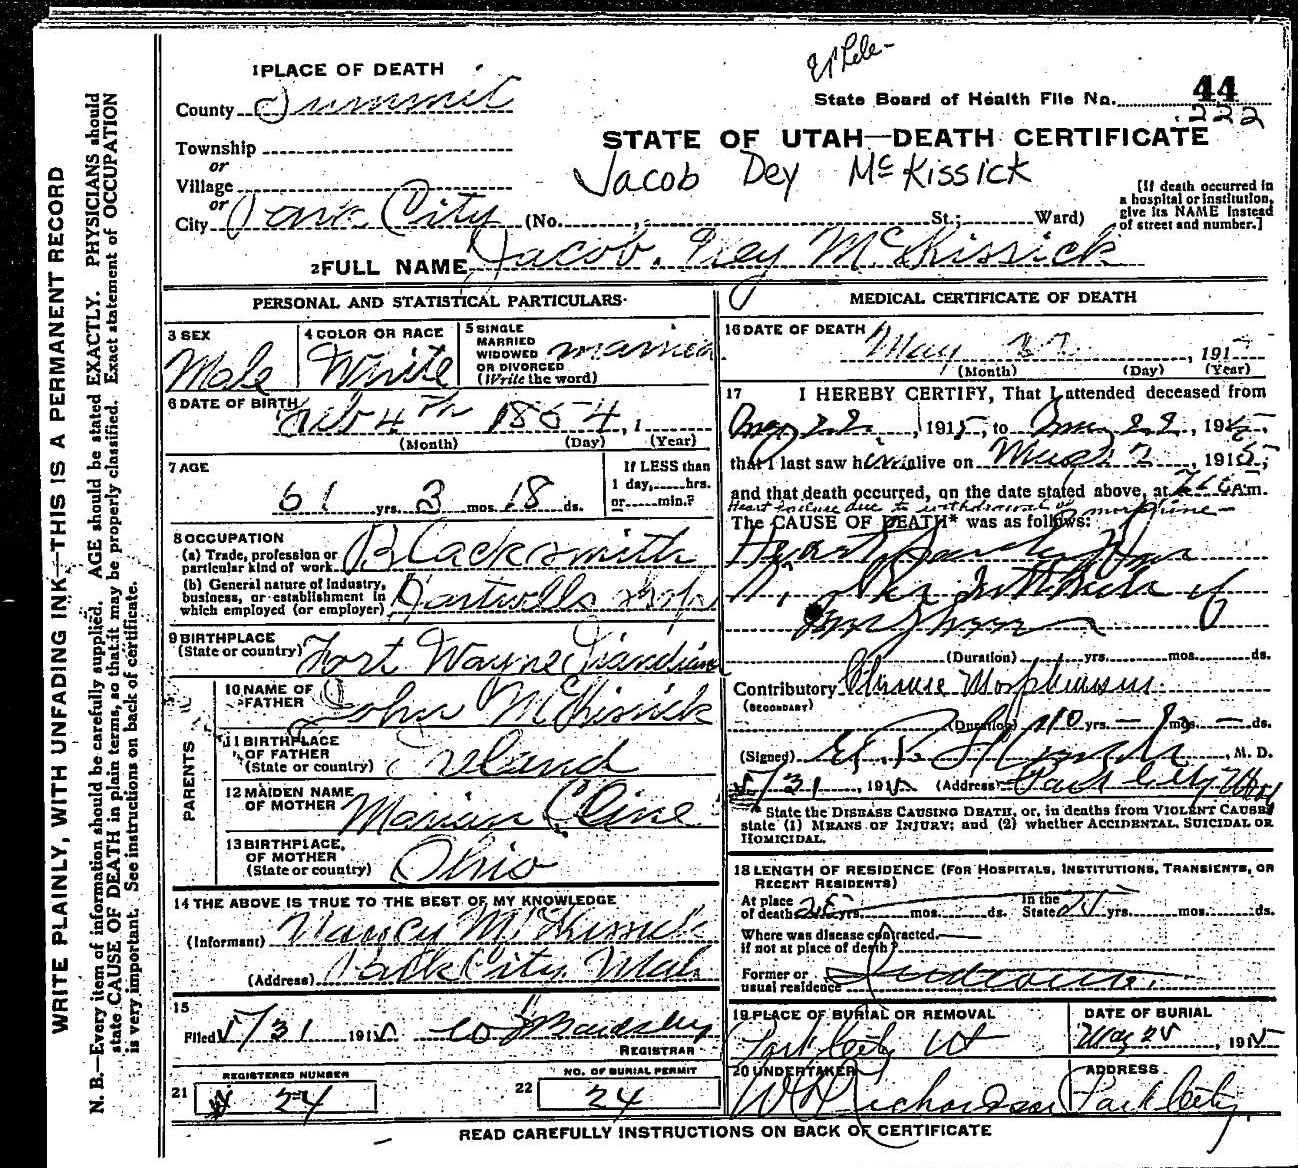 1 PLACE OF DEATH
County Summit
Township
or
Village
or
City Park City (No. , St.; Ward)
State Board of Health File No. 44
222
STATE OF UTAH—DEATH CERTIFICATE
Jacob Dey McKissick
[If death occurred in
a hospital or institution,
give its NAME instead
of street and number.]
2 FULL NAME Jacob Dey McKissick
PERSONAL AND STATISTICAL PARTICULARS
3 SEX
Male
4 COLOR OR RACE
White
5 SINGLE
MARRIED
WIDOWED
OR DIVORCED
(Write the word)
married
6 DATE OF BIRTH
Feb 4th 1854, 1
(Month) (Day) (Year)
7 AGE
61 yrs. 3 mos. 18 ds.
If LESS than
1 day, hrs.
or min.?
8 OCCUPATION
(a) Trade, profession or
particular kind of work Blacksmith
(b) General nature of industry,
business, or establishment in
which employed (or employer) Hartwells Shop
9 BIRTHPLACE
(State or country) Fort Wayne
PARENTS
10 NAME OF
FATHER John McKissick
11 BIRTHPLACE
OF FATHER
(State or country) Ireland
12 MAIDEN NAME
OF MOTHER Marian Cline
13 BIRTHPLACE
OF MOTHER
(State or country) Ohio
14 THE ABOVE IS TRUE TO THE BEST OF MY KNOWLEDGE
(Informant) Nancy McKissick
(Address) Park City
15
Filed 5/31 1915
REGISTRAR
21 REGISTERED NUMBER
24
22 NO. OF BURIAL PERMIT
24
MEDICAL CERTIFICATE OF DEATH
16 DATE OF DEATH
May , 191
(Month) (Day) (Year)
17 I HEREBY CERTIFY, That I attended deceased from
May 22, 1915, to May 22, 1915,
that I last saw him alive on , 1915,
and that death occurred, on the date stated above, at m.
Heart failure due to withdrawal of morphine—
The CAUSE OF DEATH* was as follows:
Heart
(Duration) yrs. mos. ds.
Contributory Morphinism
(SECONDARY)
(Duration) 10 yrs. — mos. — ds.
(Signed) , M. D.
5/31, 1915 (Address) Park City Utah
* State the DISEASE CAUSING DEATH, or, in deaths from VIOLENT CAUSES
state (1) MEANS OF INJURY; and (2) whether ACCIDENTAL, SUICIDAL OR
HOMICIDAL.
18 LENGTH OF RESIDENCE (FOR HOSPITALS, INSTITUTIONS, TRANSIENTS, OR
RECENT RESIDENTS)
At place
of death yrs. mos. ds.
In the
State yrs. mos. ds.
Where was disease contracted.
if not at place of death?
Former or
usual residence
19 PLACE OF BURIAL OR REMOVAL
Park City Ut
DATE OF BURIAL
May 25, 1915
20 UNDERTAKER
W Richardson
ADDRESS
Park City
READ CAREFULLY INSTRUCTIONS ON BACK OF CERTIFICATE
WRITE PLAINLY, WITH UNFADING INK—THIS IS A PERMANENT RECORD
N. B.—Every item of information should be carefully supplied. AGE should be stated EXACTLY. PHYSICIANS should
state CAUSE OF DEATH in plain terms, so that it may be properly classified. Exact statement of OCCUPATION
is very important. See instructions on back of certificate.